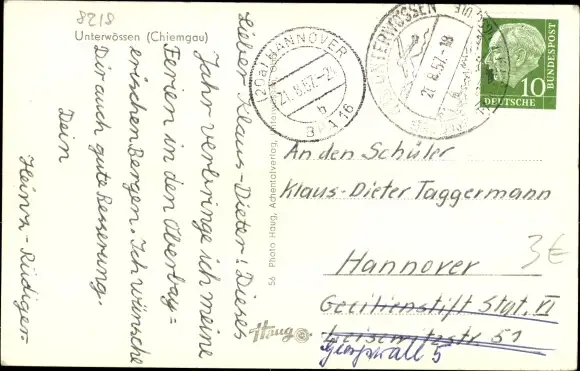 8218
Unterwössen (Chiemgau)
Lieber Klaus-Dieter! Dieses
Jahr verbringe ich meine
Ferien in den Oberbay=
erischen Bergen. Ich wünsche
Dir auch gute Besserung.
Dein
Heinz-Rüdiger
56 Photo Haug, Achentalverlag,
Haug
(20a) HANNOVER
21.8.57.-21
b
BPA 16
UNTERWÖSSEN
21.8.57.-18
DEUTSCHE
BUNDESPOST
10
An den Schüler
Klaus-Dieter Taggermann
Hannover
3€
Cecilienstift Stat. VI
51
Georgwall 5